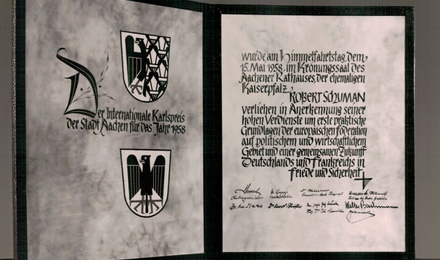 Der Internationale Karlspreis
der Stadt Aachen für das Jahr 1958
wurde am Himmelfahrtstag, dem
15. Mai 1958, im Krönungssaal des
Aachener Rathauses, der ehemaligen
Kaiserpfalz,
ROBERT SCHUMAN
verliehen in Anerkennung seiner
hohen Verdienste um erste praktische
Grundlagen der europäischen Föderation
auf politischem und wirtschaftlichem
Gebiet und einer gemeinsamen Zukunft
Deutschlands und Frankreichs in
Friede und Sicherheit